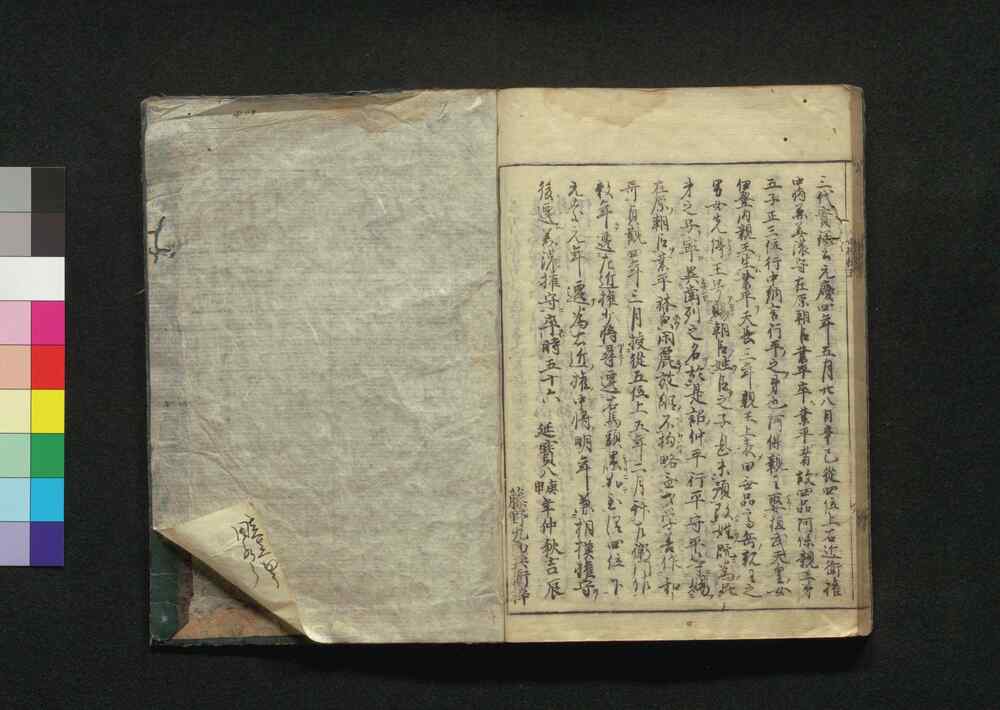 三代實録云元慶四年五月廿八日辛巳從四位上右近衛權
中將兼美濃守在原朝臣業平卒業平者故四品阿保親王第
五子正三位行中納言行平之弟也阿保親王娶桓武天皇女
伊登内親王生業平天長三年親王上表曰無品高岳親王之
男女先停王号賜朝臣姓臣之子息未預改姓既為昆
弟之子寧異齒列之差於是詔仲平行平守平等賜姓
在原朝臣業平体皃閑麗放縱不拘略無才学善作和
哥貞觀四年三月授從五位上五年二月拜左兵衛佐
数年遷左近權少將尋遷右馬頭累加至從四位下
元慶元年遷為右近權中將明年兼相摸權守
後遷美濃權守卒時五十六 延寶八庚申年仲秋吉辰
藤野九良兵衛